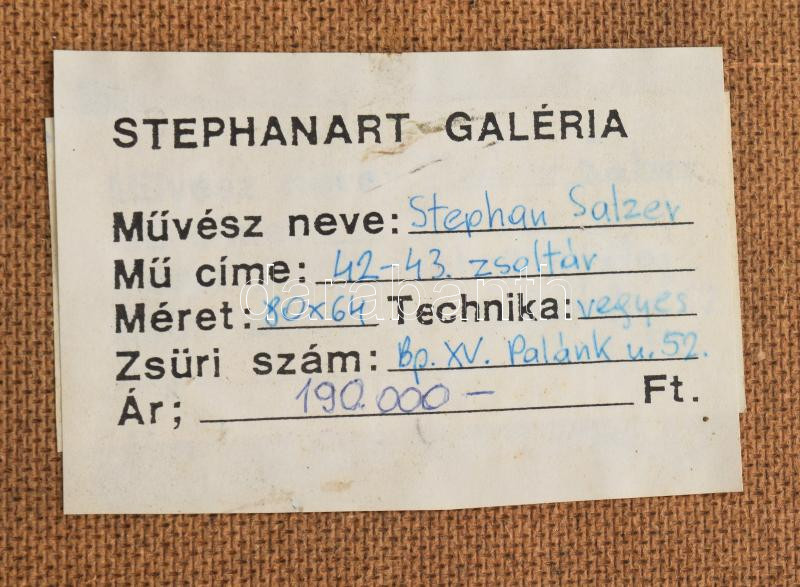 STEPHANART GALÉRIA
Művész neve: Stephan Salzer
Mű címe: 42-43. zsoltár
Méret: 80x64 Technika: vegyes
Zsüri szám: Bp. XV. Palánk u. 52.
Ár; 190.000 – Ft.
darabanth.com